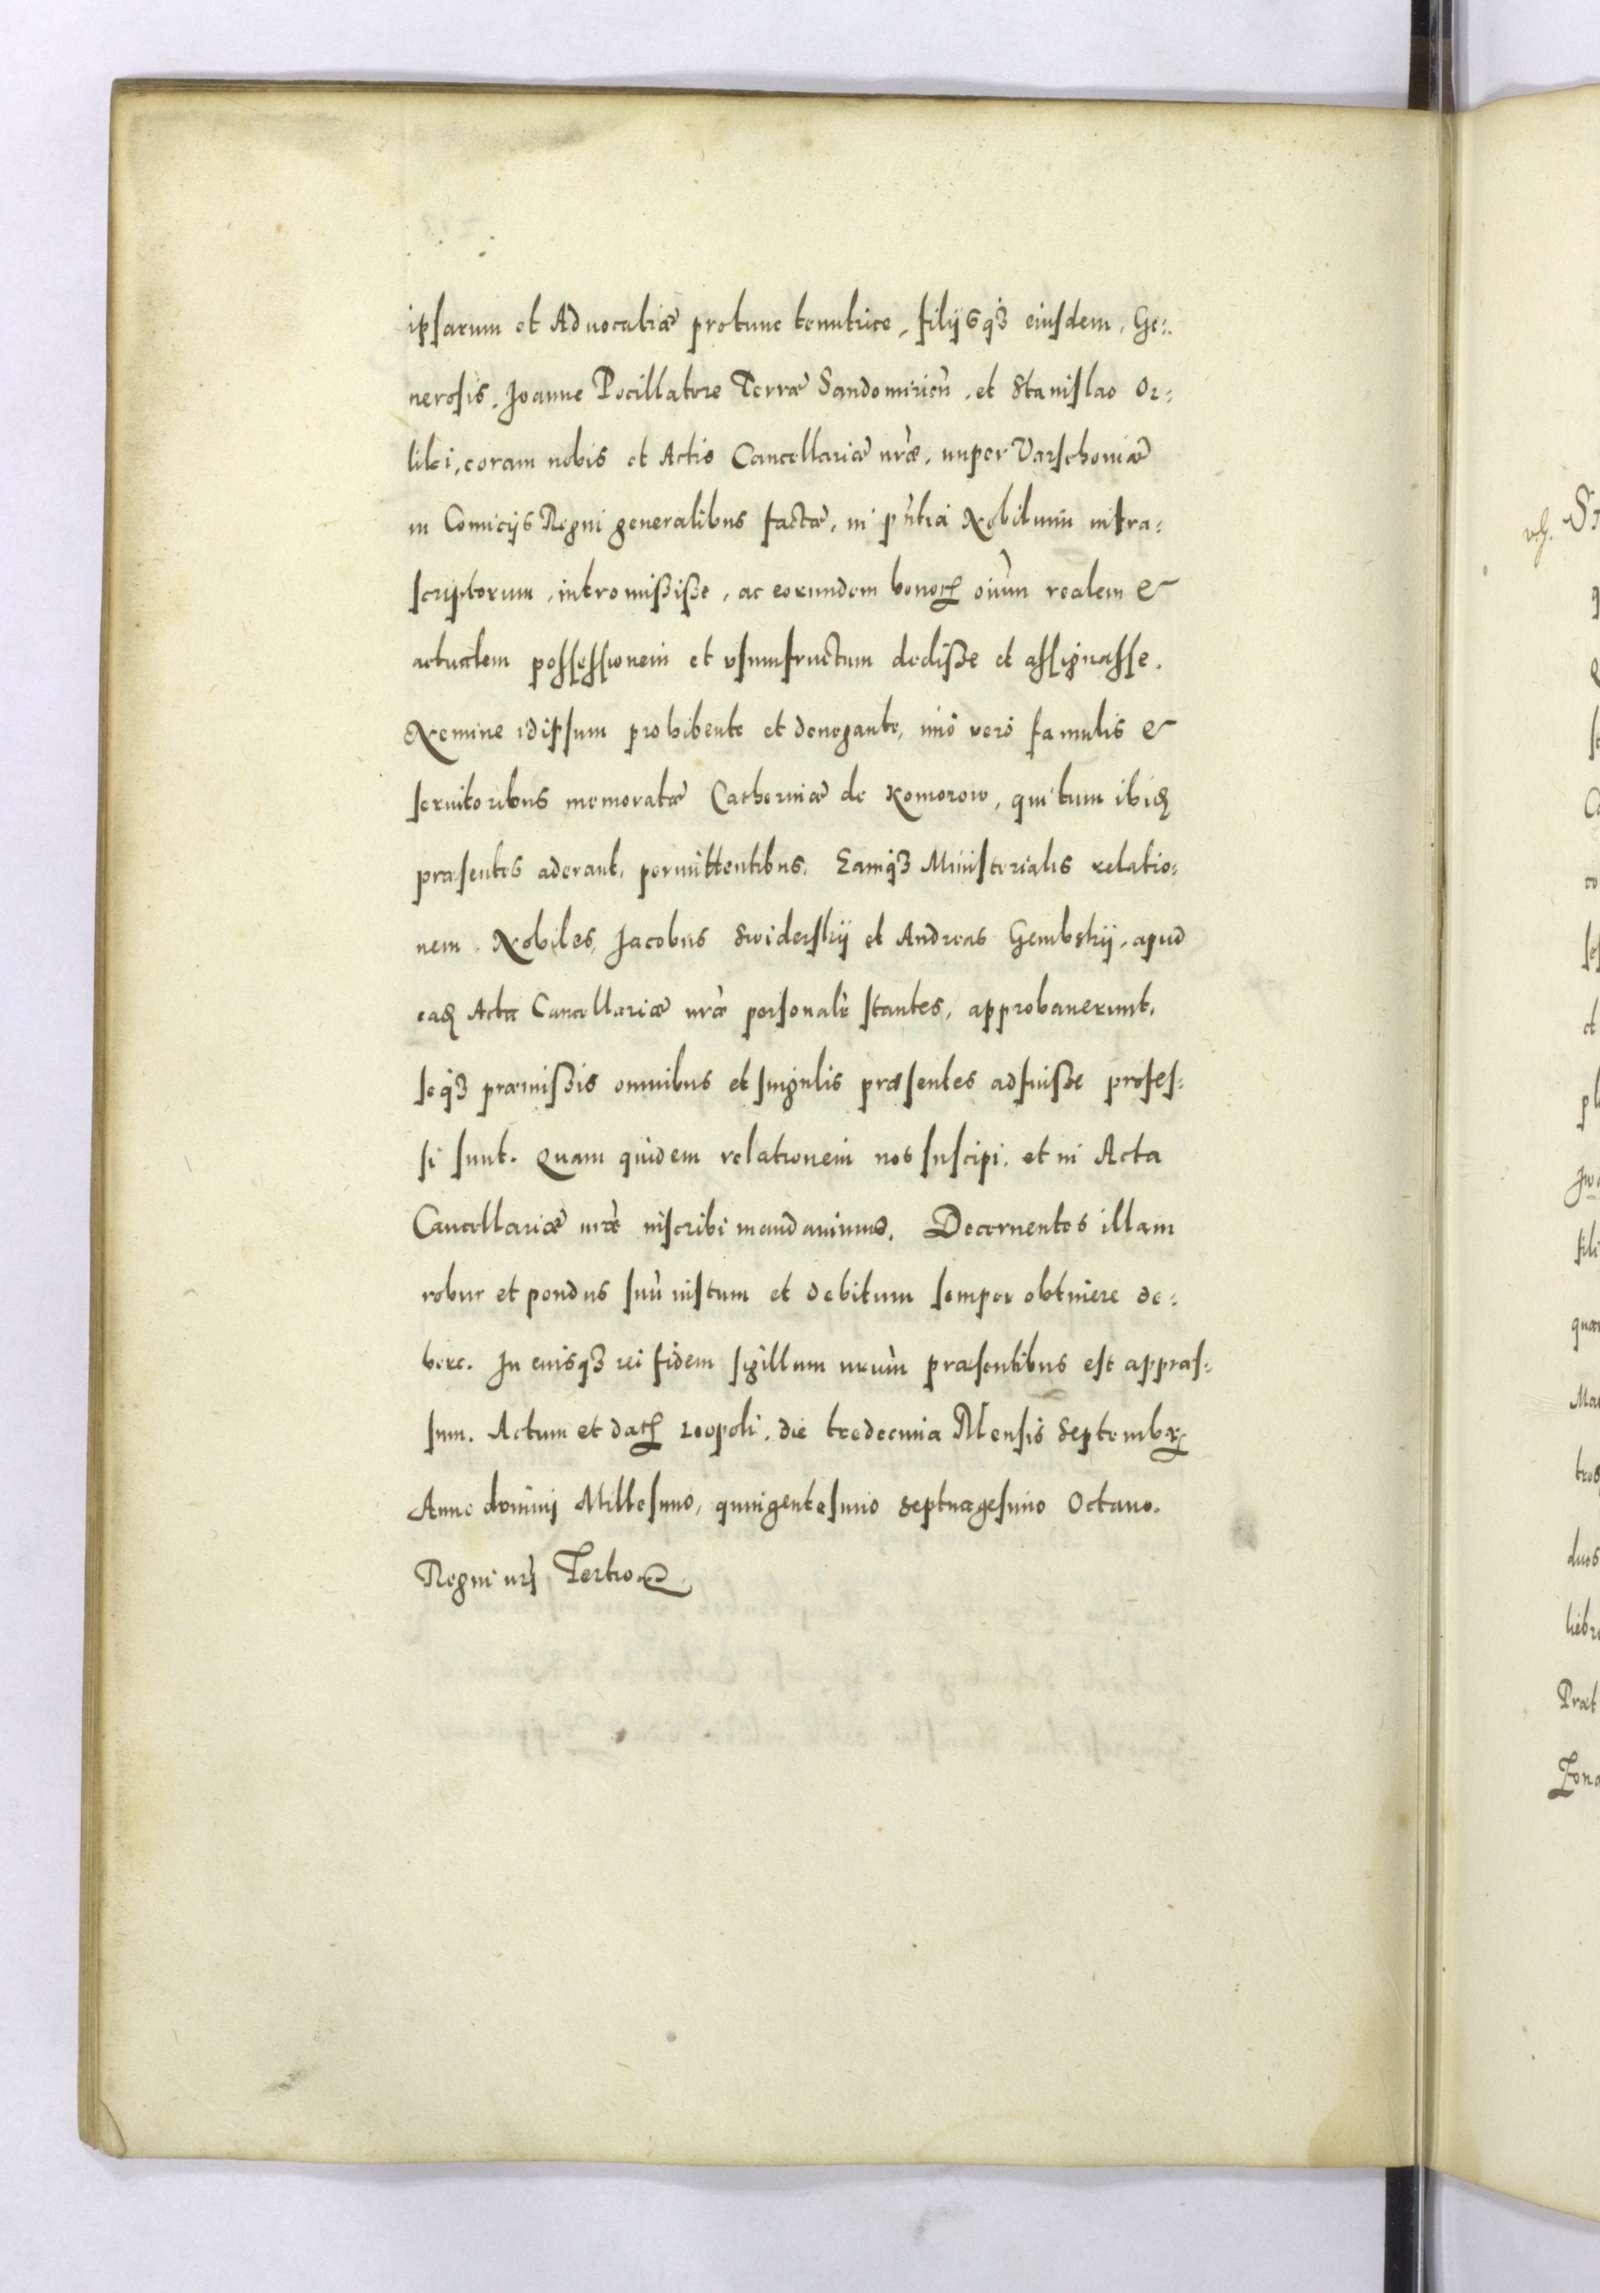 ipsarum et Aduocatiæ protunc tenutrice, filijsq3 eiusdem, Ge:
nerosis, Joanne Pocillatore Terræ Sandomirien̄, et Stanislao Or:
liki, coram nobis et Actis Cancellariæ nr̄æ, nuper Varschouiæ
in Comicijs Regni generalibus factæ, in pn̄tiā Nobilium infra:
scriptorum, intromisisse, ac eorundem bonor͡ oīum realem &
actualem possessionem et vsumfructum dedisse et assignasse.
Nemine idipsum prohibente et denegante, imò verò famulis &
seruitoribus memoratæ Catherinæ de Komorow, qui tum ibid͡
præsentes aderant, permittentibus. Eamq3 Ministerialis relatio:
nem, Nobiles, Jacobus Swiderskij et Andreas Gembskij, apud
ead͡ Acta Cancellariæ nr̄æ personalr̄ stantes, approbauerunt,
seq3 præmissis omnibus et singulis præsentes adfuisse profes:
si sunt. Quam quidem relationem nos suscipi, et in Acta
Cancellariæ nr̄æ inscribi mandauimus. Decernentes illam
robur et pondus suū iustum et debitum semper obtinere de:
bere. In cuiusq3 rei fidem sigillum nr̄um præsentibus est appræs:
sum. Actum et dat͡ Leopoli, die tredecima Mensis Septembr͡
Anno domini Millesimo, quingentesimo septuagesimo Octauo.
Regni nr̄j Tertio